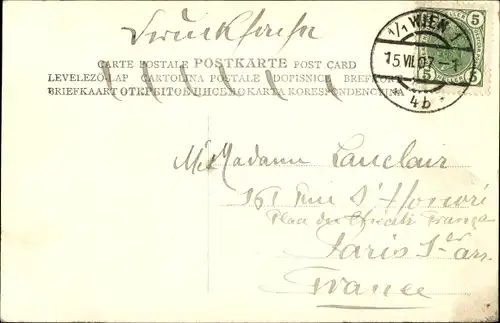 Drucksache
CARTE POSTALE POSTKARTE POST CARD
LEVELEZŐ-LAP CARTOLINA POSTALE DOPISNICE BREFKORT
BRIEFKAART ОТКРЫТОЕ ПИСЬМО KARTA KORESPONDENCYJNA
1/1 WIEN 1
15 VII 07
4b
5
5
5
Madame Lanclair
161 Rue St Honoré
Place du Théâtre Français
Paris 1er arr
France